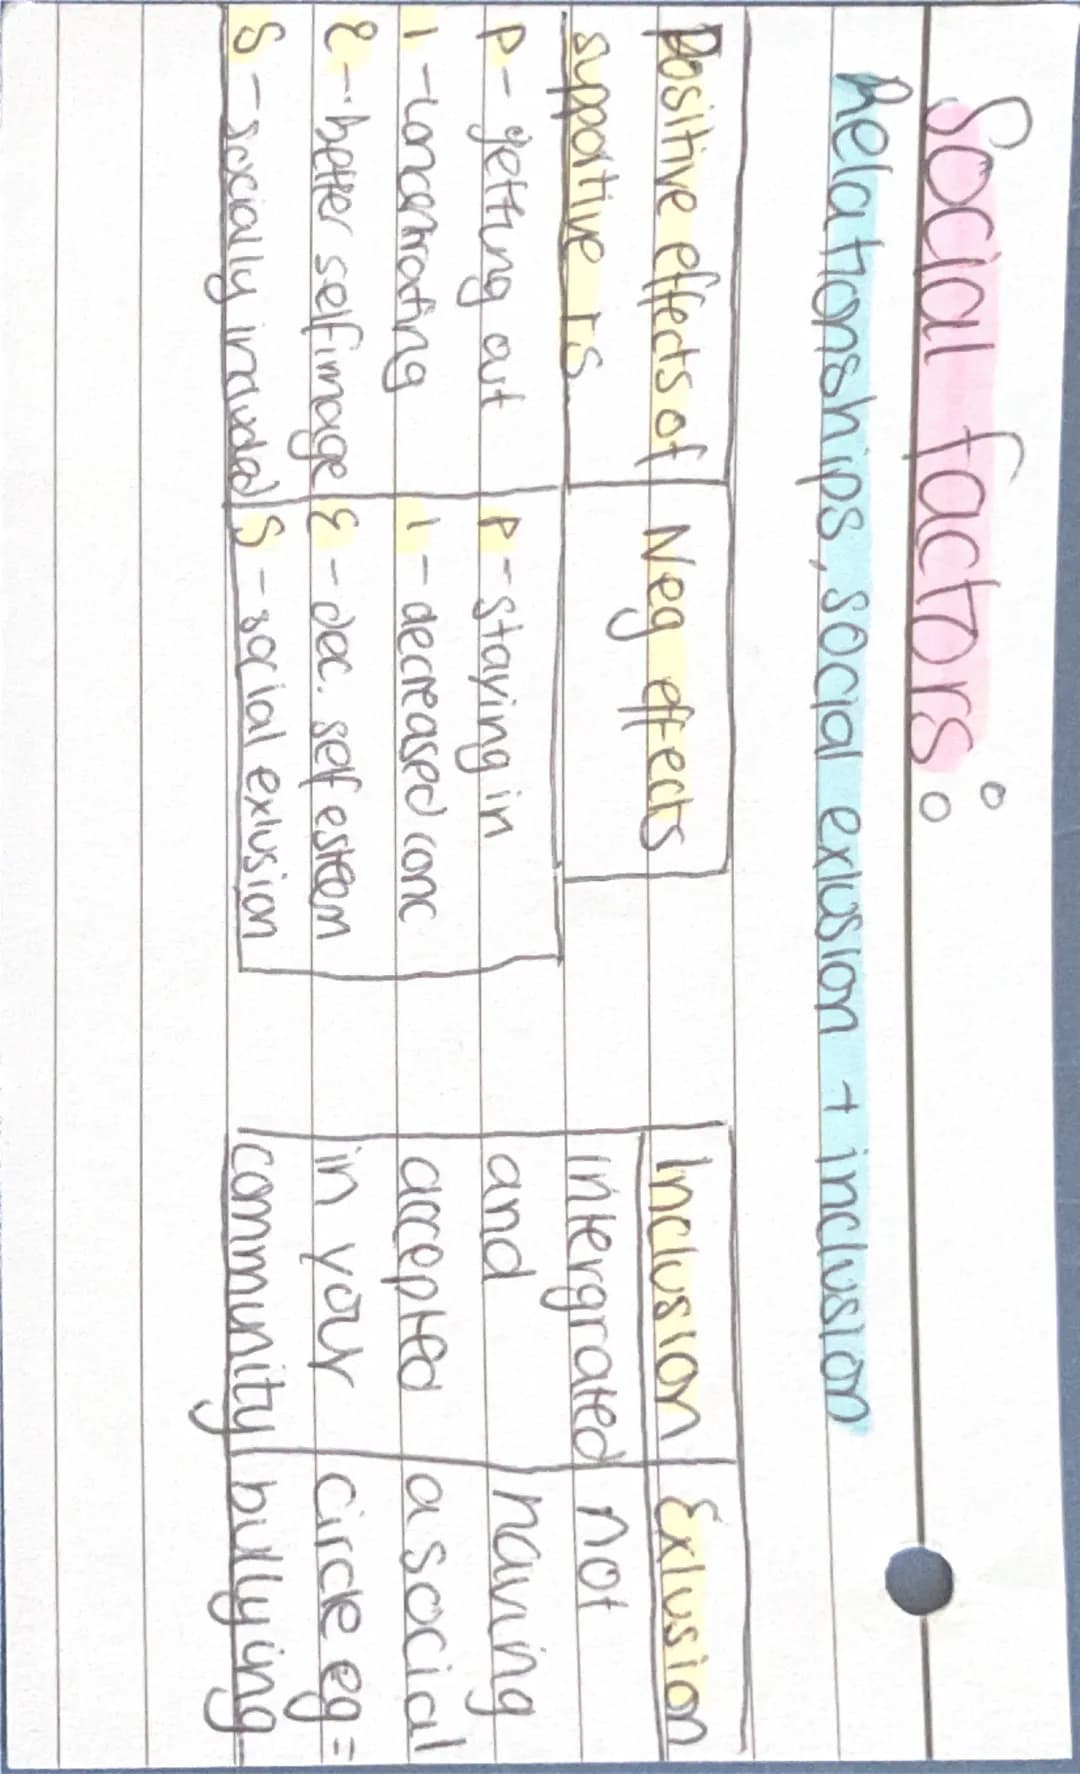 Social factors :
Relationships, social exlusion + inclusion
Positive effects of supportive r.s
P - getting out
I - concentrating
E - better self image
S - socially included
Neg effects
P - staying in
I - decreased conc
E - dec. self esteem
S - social exlusion
Inclusion
intergrated
and
accepted
in your
community
Exlusion
not
having
a social
circle eg =
bullying